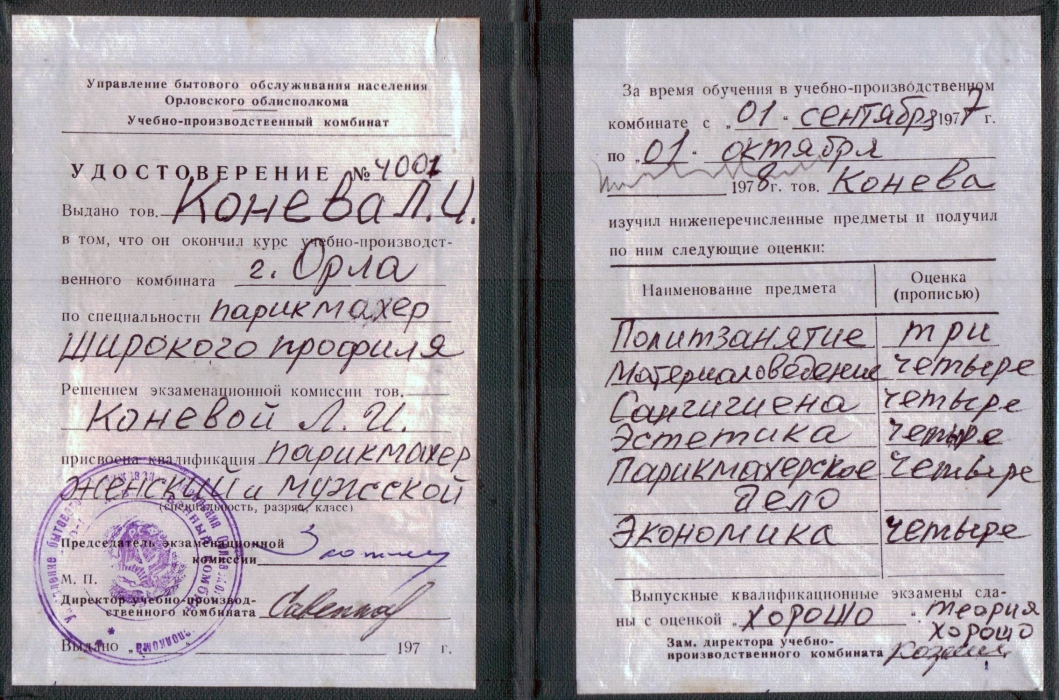 Управление бытового обслуживания населения
Орловского облисполкома
Учебно-производственный комбинат
УДОСТОВЕРЕНИЕ № 4001
Выдано тов. Конева Л.И.
в том, что он окончил курс учебно-производст-
венного комбината г. Орла
по специальности парикмахер
широкого профиля
Решением экзаменационной комиссии тов.
Коневой Л. И.
присвоена квалификация парикмахер
женский и мужсской
(специальность, разряд, класс)
Председатель экзаменационной
комиссии
М. П.
Директор учебно-производ-
ственного комбината
Выдано „ 197 г.
За время обучения в учебно-производственном
комбинате с „01“ сентября 1977 г.
по „01“ октября
1978 г. тов. Конева
изучил нижеперечисленные предметы и получил
по ним следующие оценки:
Наименование предмета Оценка (прописью)
Политзанятие три
Материаловедение четыре
Сангигиена четыре
Эстетика четыре
Парикмахерское четыре
дело
Экономика четыре
Выпускные квалификационные экзамены сда-
ны с оценкой „хорошо“. теория
хорошо
Зам. директора учебно-
производственного комбината